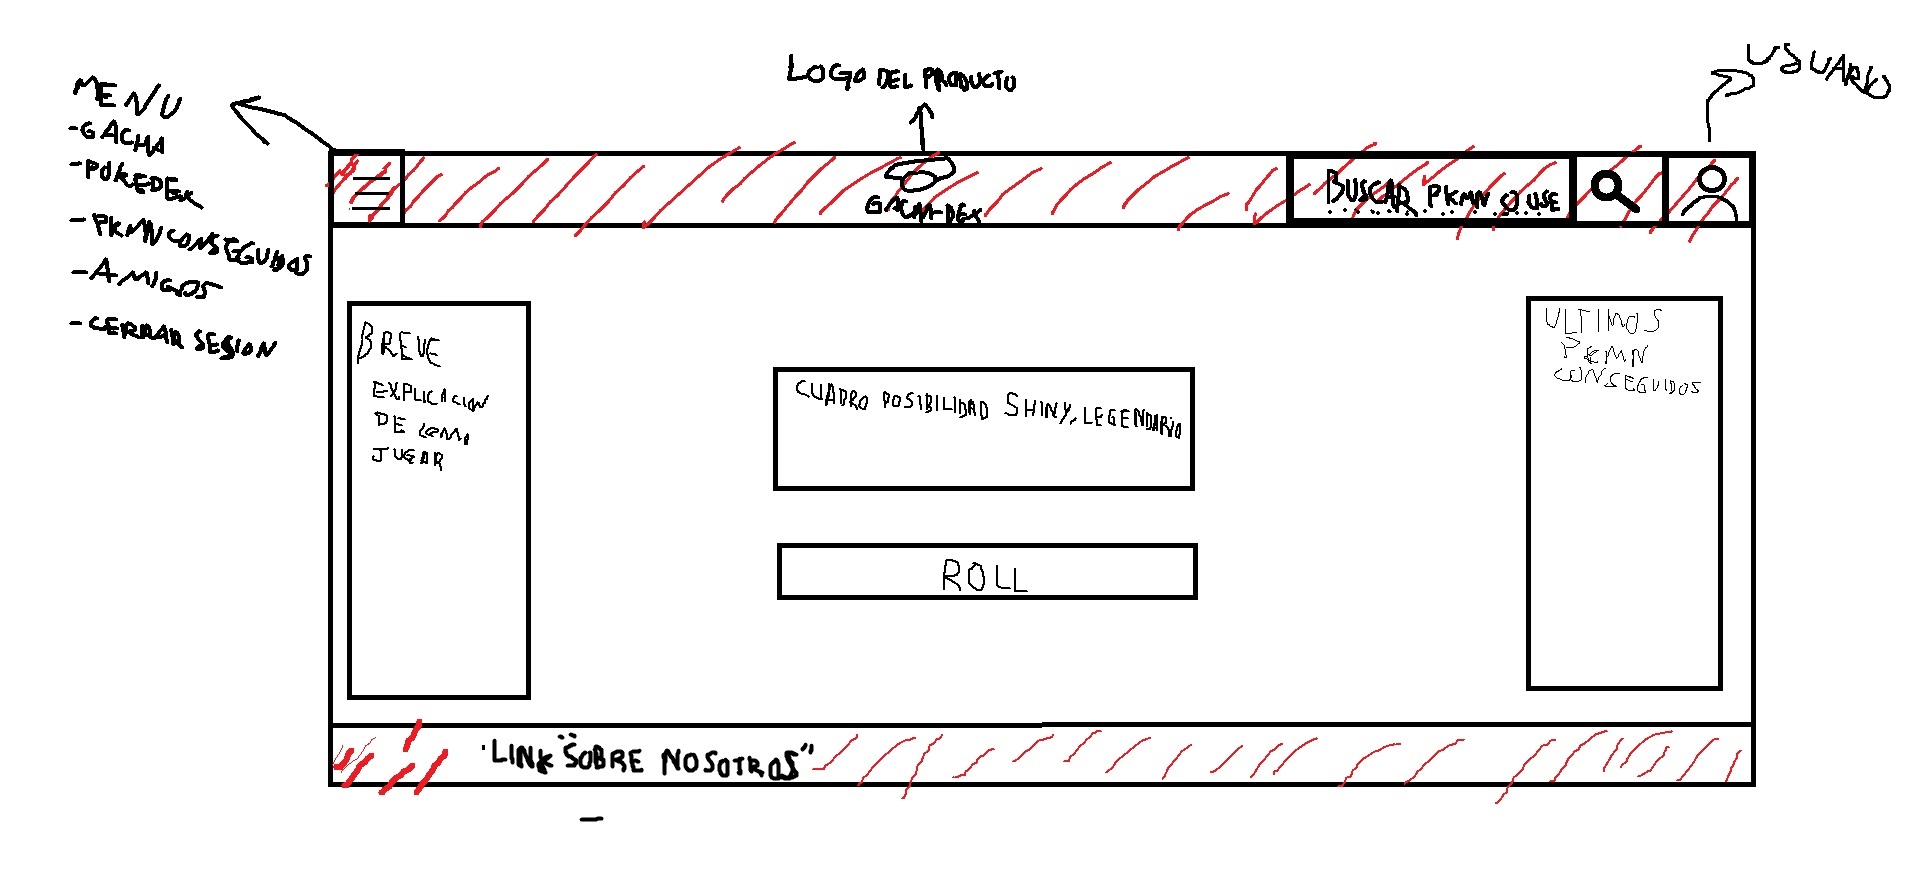 MENU
-GACHA
-POKEDEX
-PKMN CONSEGUIDOS
-AMIGOS
-CERRAR SESION
LOGO DEL PRODUCTO
USUARIO
GACHA-DEX
BUSCAR PKMN O USE
BREVE
EXPLICACION
DE COMO
JUGAR
CUADRO POSIBILIDAD SHINY, LEGENDARIO
ROLL
ULTIMOS
PKMN
CONSEGUIDOS
"LINK "SOBRE NOSOTROS"